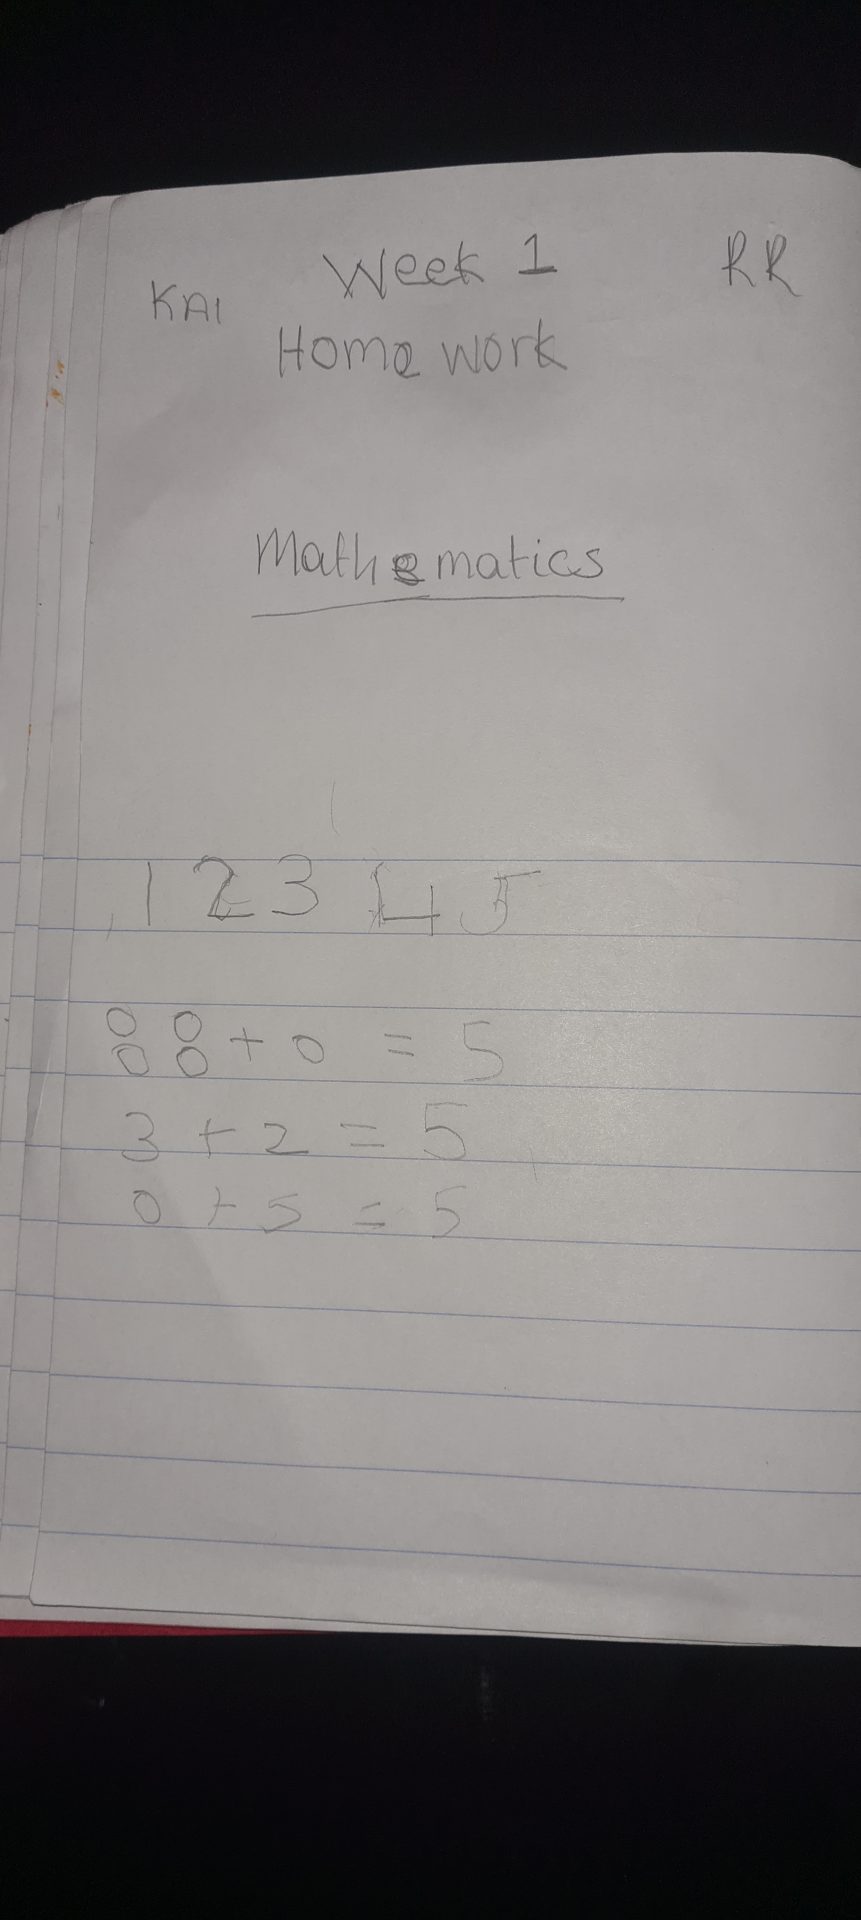 KAI Week 1 RR
Home work
Mathematics
1 2 3 4 5
0 0
0 0 + 0 = 5
3 + 2 = 5
0 + 5 = 5